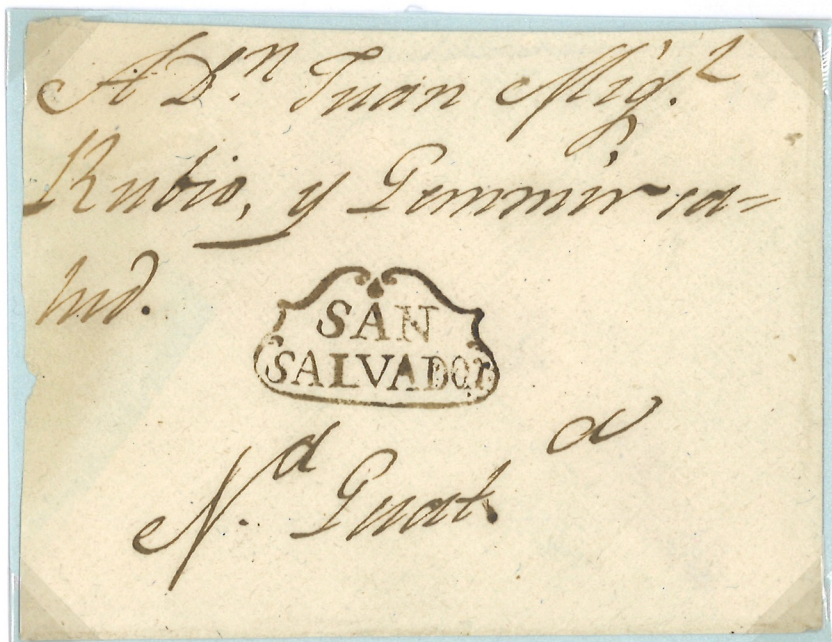 A Dn. Juan Mig.l
Rubio, y Gemmir sa=
lud.
SAN
SALVADOR
N. d Guat. a